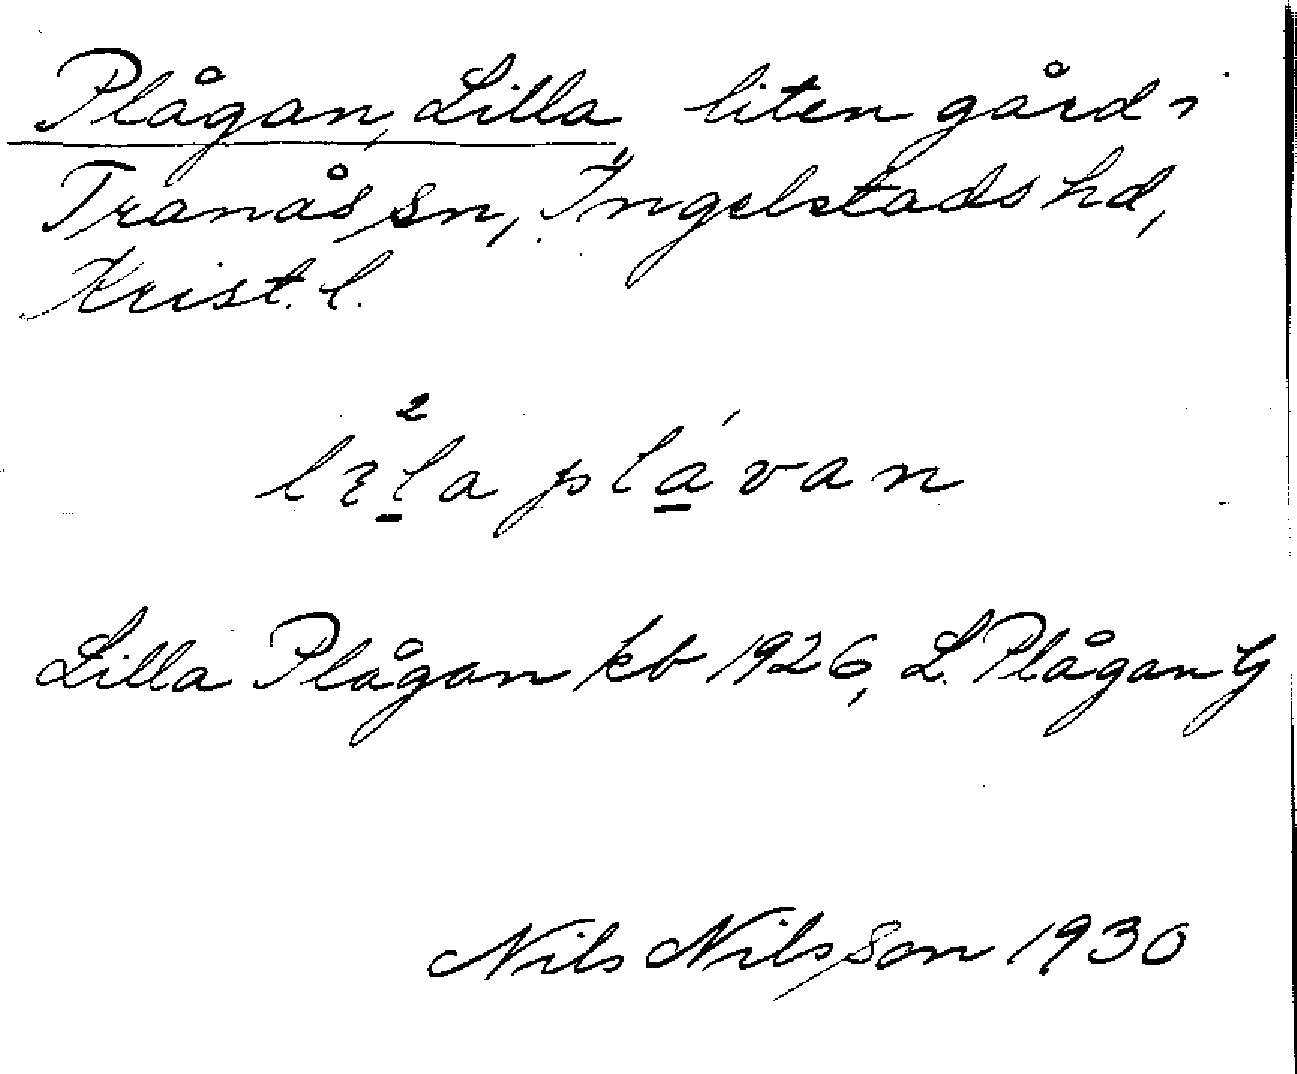 Plågan, Lilla liten gård i
Tranås sn, Ingelstads hd,
Krist. l.
plávan
Lilla Plågan kb 1926, L. Plågan G
Nils Nilsson 1930